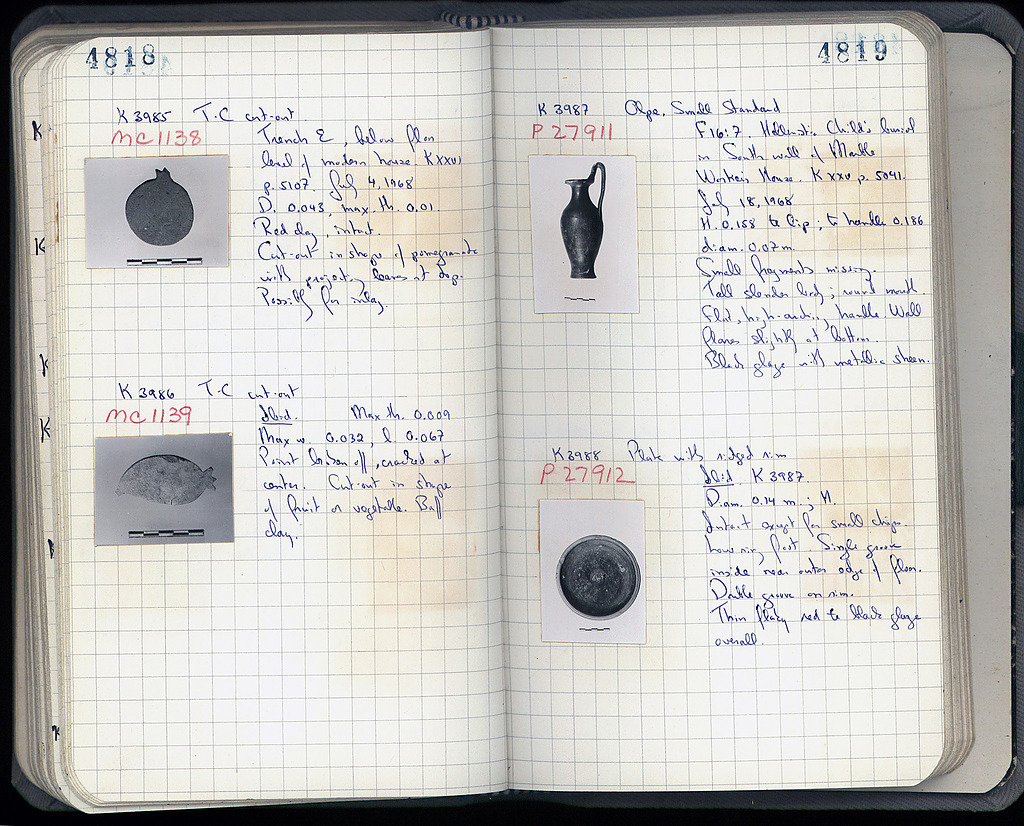 4818
K 3985 T.C cut-out
MC 1138
Trench E, below floor
level of modern house. K XXVI
p. 5107. July 4, 1968
D. 0.043, max. th. 0.01.
Red clay, intact.
Cut-out in shape of pomegranate
with projecting leaves at top.
Possibly for inlay.
K 3986 T.C cut-out
MC 1139
Ibid. Max th. 0.009
Max w. 0.032, l. 0.067
Point broken off, cracked at
center. Cut-out in shape
of fruit or vegetable. Buff
clay.
4819
K 3987 Olpe, Small Standard
P 27911
F 16:7. Hellenistic Child's burial
in South wall of Marble
Workers House. K XXV p. 5041.
July 18, 1968
H. 0.158 to lip; to handle 0.186
diam. 0.07 m.
Small fragments missing.
Tall slender body; round mouth.
Flat, high-arching handle. Wall
flares slightly at bottom.
Black glaze with metallic sheen.
K 3988 Plate with ridged rim
P 27912
Ibid K 3987.
Diam. 0.14 m.; H
Intact except for small chips.
Low ring foot. Single groove
inside near outer edge of floor.
Double groove on rim.
Thin flaky red to black glaze
overall.
K
K
K
K
K
K